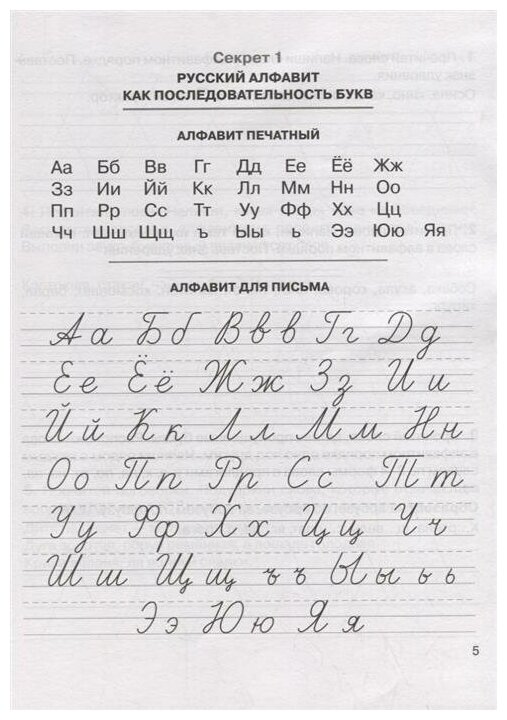 Секрет 1
РУССКИЙ АЛФАВИТ
КАК ПОСЛЕДОВАТЕЛЬНОСТЬ БУКВ
АЛФАВИТ ПЕЧАТНЫЙ
Аа Бб Вв Гг Дд Ее Ёё Жж
Зз Ии Йй Кк Лл Мм Нн Оо
Пп Рр Сс Тт Уу Фф Хх Цц
Чч Шш Щщ ъ Ыы ь Ээ Юю Яя
АЛФАВИТ ДЛЯ ПИСЬМА
А а Б б В в в Г г Д д
Е е Ё ё Ж ж З з И и
Й й К к Л л М м Н н
О о П п Р р С с Т т
У у Ф ф Х х Ц ц Ч ч
Ш ш Щ щ ъ ъ Ы ы ь ь
Э э Ю ю Я я
5